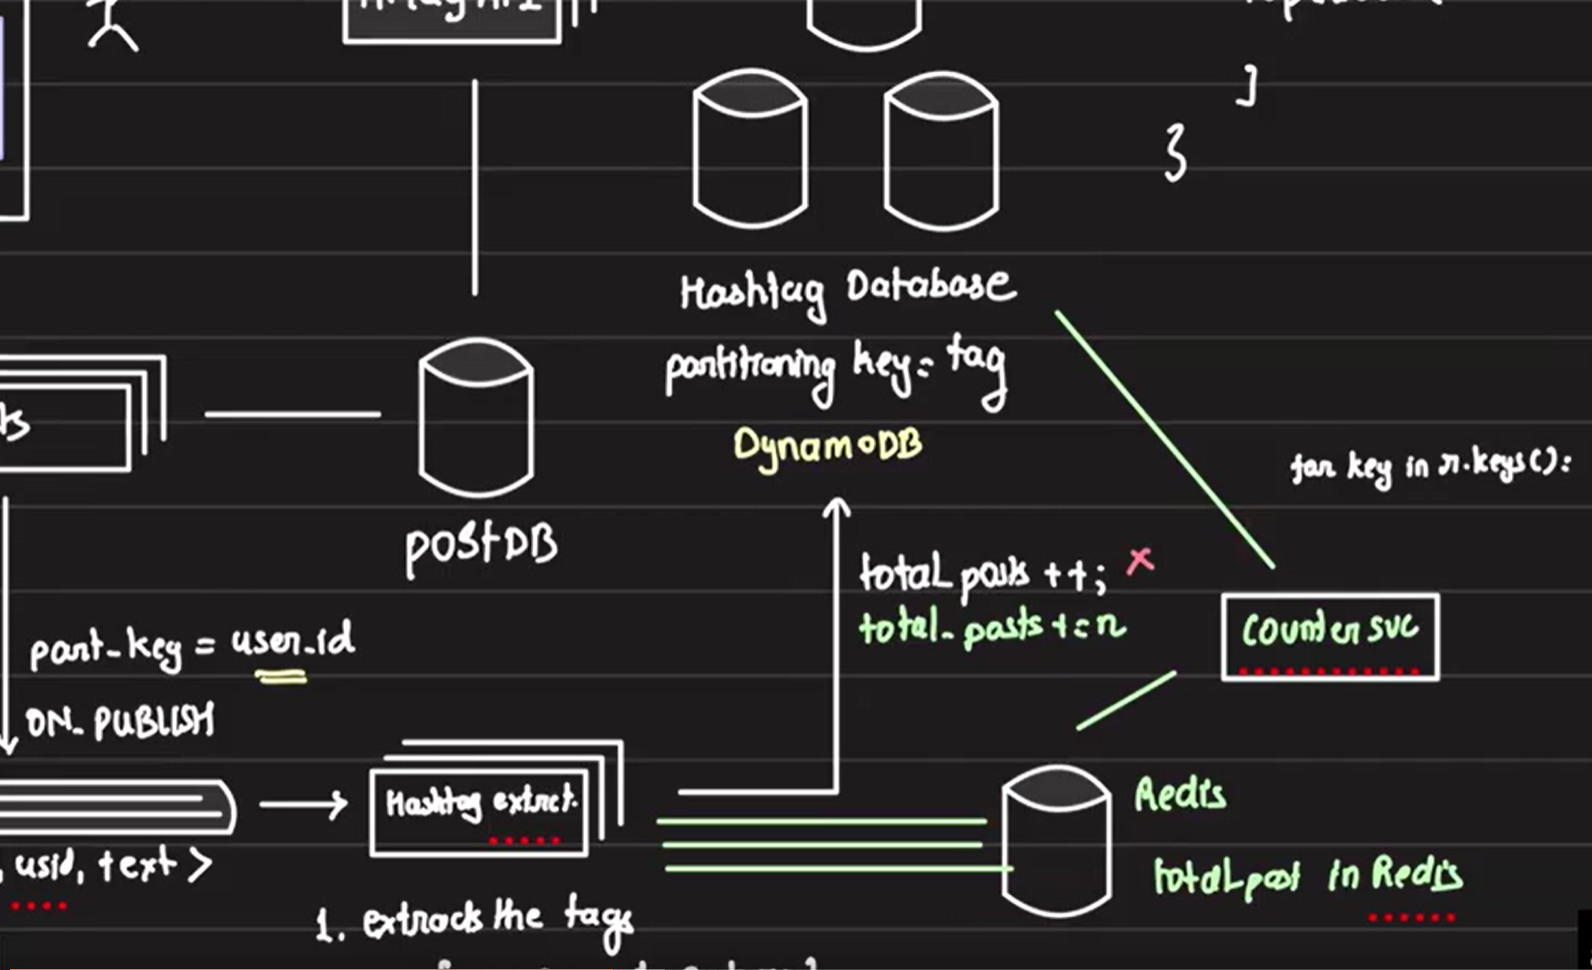 ]
}
Hashtag Database
partitioning key = tag
DynamoDB
for key in r.keys():
postDB
total posts ++; x
total_posts += n
counter svc
part_key = user_id
ON_PUBLISH
Hashtag extract.
Redis
, usid, text >
total post in Redis
1. extracts the tags